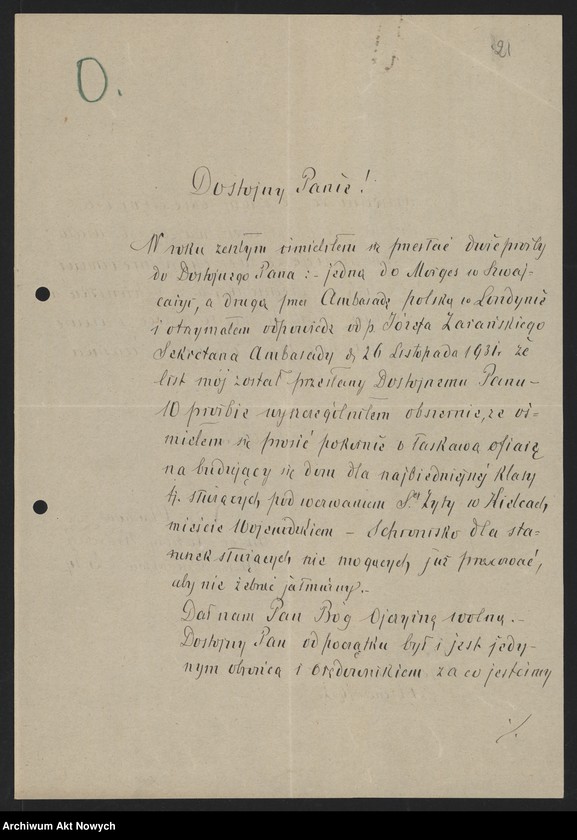 21
O.
Dostojny Panie!
W roku zeszłym ośmieliłem się przesłać dwie prośby
do Dostojnego Pana :- jedną do Morges w Szwaj-
caryi, a drugą przez Ambasadę polską w Londynie
i otrzymałem odpowiedź od p. Józefa Zarańskiego
Sekretarza Ambasady d, 26 Listopada 1931r że
list mój został przesłany Dostojnemu Panu –
W prośbie wyszczególniłem obszernie, że oś-
mielam się prosić pokornie o łaskawą ofiarę
na budujący się dom dla najbiedniejszej klasy
tj. służących, pod wezwaniem Sej Zyty w Kielcach,
mieście Wojewódzkiem – Schronisko dla sta-
ruszek służących, nie mogących już pracować,
aby nie żebrać jałmużny.-
Dał nam Pan Bóg Ojczyznę wolną.-
Dostojny Pan od początku był i jest jedy-
nym obrońcą i orędownikiem za co jesteśmy
./.
Archiwum Akt Nowych